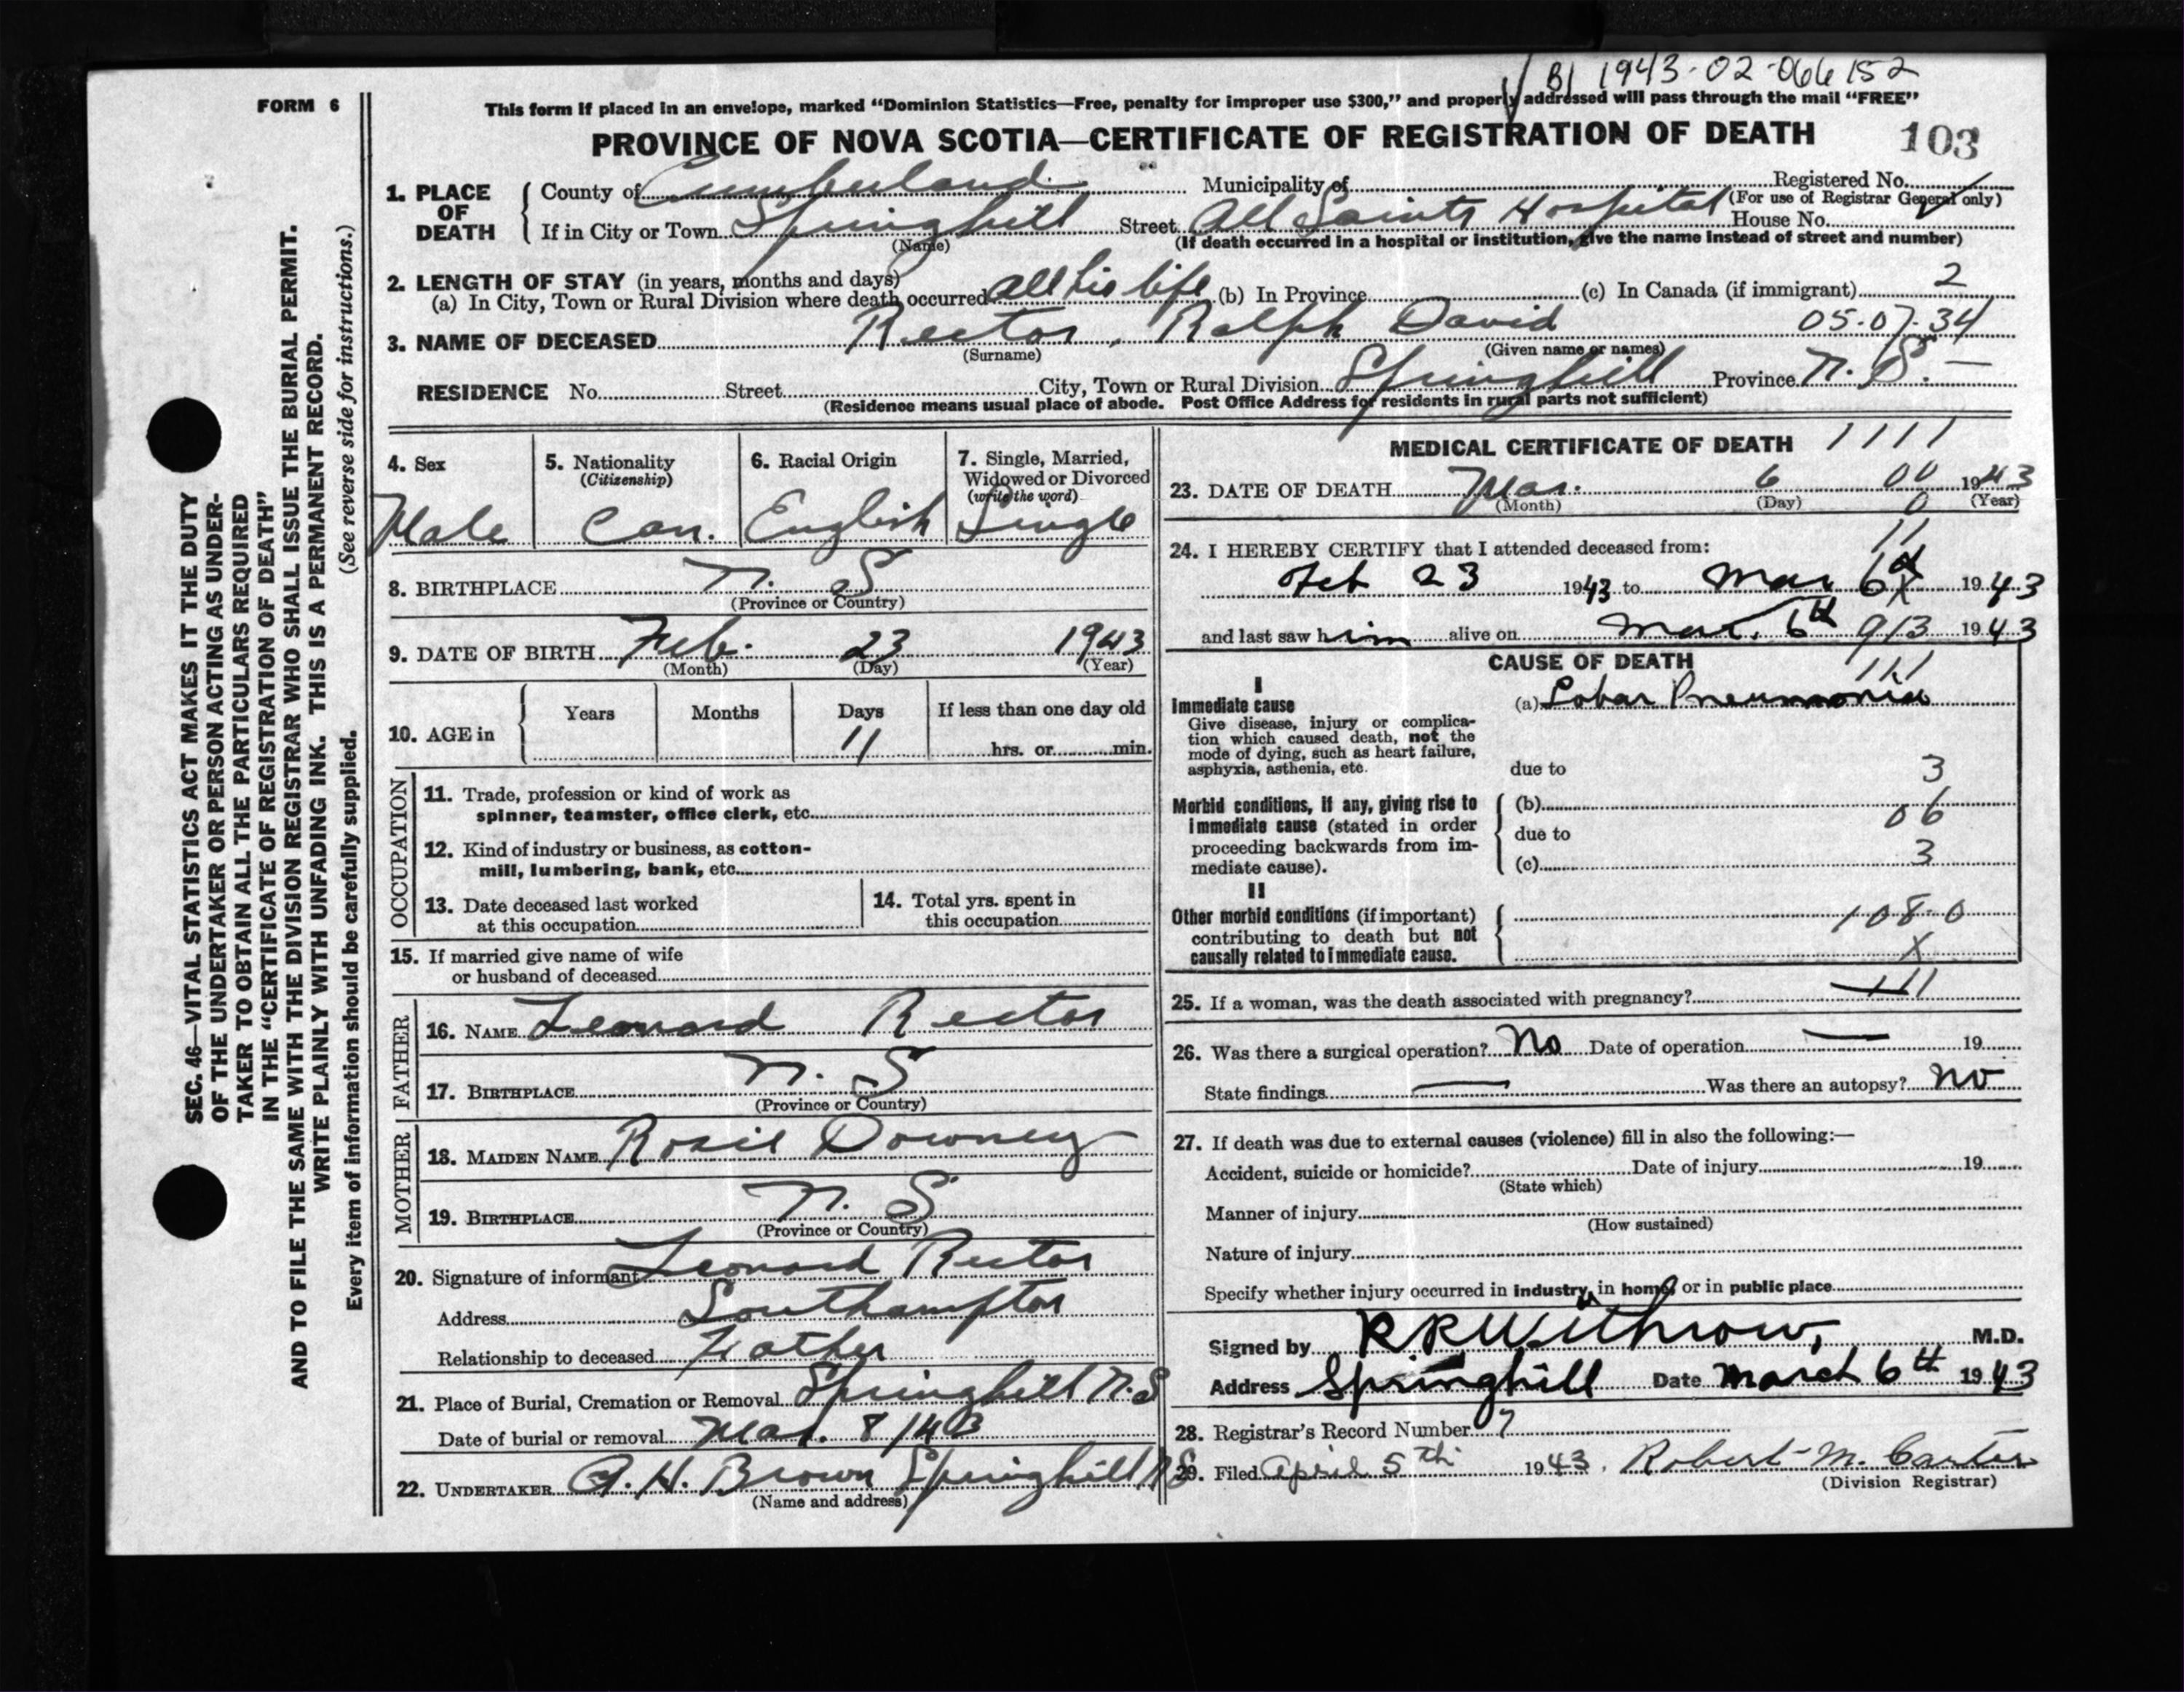 B| 1943-02-066152
FORM 6
This form if placed in an envelope, marked “Dominion Statistics—Free, penalty for improper use $300,” and properly addressed will pass through the mail “FREE”
PROVINCE OF NOVA SCOTIA—CERTIFICATE OF REGISTRATION OF DEATH 103
1. PLACE OF DEATH
County of Cumberland Municipality of Registered No.
(For use of Registrar General only)
If in City or Town Springhill Street All Saints Hospital House No.
(Name) (If death occurred in a hospital or institution, give the name instead of street and number)
2. LENGTH OF STAY (in years, months and days)
(a) In City, Town or Rural Division where death occurred all his life (b) In Province (c) In Canada (if immigrant) 2
3. NAME OF DECEASED Rector, Ralph David 05-07-34
(Surname) (Given name or names)
RESIDENCE No. Street City, Town or Rural Division Springhill Province N.S. —
(Residence means usual place of abode. Post Office Address for residents in rural parts not sufficient)
4. Sex
Male
5. Nationality
(Citizenship)
Can.
6. Racial Origin
English
7. Single, Married,
Widowed or Divorced
(write the word)
Single
8. BIRTHPLACE N. S
(Province or Country)
9. DATE OF BIRTH Feb. 23 1943
(Month) (Day) (Year)
10. AGE in
Years Months Days If less than one day old
11 hrs. or min.
OCCUPATION
11. Trade, profession or kind of work as
spinner, teamster, office clerk, etc.
12. Kind of industry or business, as cotton-
mill, lumbering, bank, etc.
13. Date deceased last worked
at this occupation
14. Total yrs. spent in
this occupation
15. If married give name of wife
or husband of deceased
FATHER
16. NAME Leonard Rector
17. BIRTHPLACE N. S
(Province or Country)
MOTHER
18. MAIDEN NAME Rosie Downey
19. BIRTHPLACE N. S
(Province or Country)
20. Signature of informant Leonard Rector
Address Southampton
Relationship to deceased Father
21. Place of Burial, Cremation or Removal Springhill N.S
Date of burial or removal Mar. 8/43
22. UNDERTAKER A. H. Brown Springhill NS
(Name and address)
MEDICAL CERTIFICATE OF DEATH 1111
23. DATE OF DEATH Mar. 6 00 1943
(Month) (Day) 0 (Year)
11
24. I HEREBY CERTIFY that I attended deceased from:
Feb 23 1943 to Mar 6 X 1943
and last saw him alive on Mar. 6th 913 1943
CAUSE OF DEATH
111
I
Immediate cause
Give disease, injury or complica-
tion which caused death, not the
mode of dying, such as heart failure,
asphyxia, asthenia, etc.
(a) Lobar Pneumonia
due to 3
Morbid conditions, if any, giving rise to
immediate cause (stated in order
proceeding backwards from im-
mediate cause).
(b) 06
due to
(c) 3
II
Other morbid conditions (if important)
contributing to death but not
causally related to immediate cause.
108-0
X
25. If a woman, was the death associated with pregnancy? 111
26. Was there a surgical operation? No Date of operation — 19
State findings — Was there an autopsy? No
27. If death was due to external causes (violence) fill in also the following:—
Accident, suicide or homicide? Date of injury 19
(State which)
Manner of injury
(How sustained)
Nature of injury
Specify whether injury occurred in industry, in home, or in public place
Signed by R R Withrow, M.D.
Address Springhill Date March 6th 1943
28. Registrar’s Record Number 7
29. Filed April 5th 1943. Robert M. Carter
(Division Registrar)
SEC. 46—VITAL STATISTICS ACT MAKES IT THE DUTY
OF THE UNDERTAKER OR PERSON ACTING AS UNDER-
TAKER TO OBTAIN ALL THE PARTICULARS REQUIRED
IN THE “CERTIFICATE OF REGISTRATION OF DEATH”
AND TO FILE THE SAME WITH THE DIVISION REGISTRAR WHO SHALL ISSUE THE BURIAL PERMIT.
WRITE PLAINLY WITH UNFADING INK. THIS IS A PERMANENT RECORD.
Every item of information should be carefully supplied. (See reverse side for instructions.)